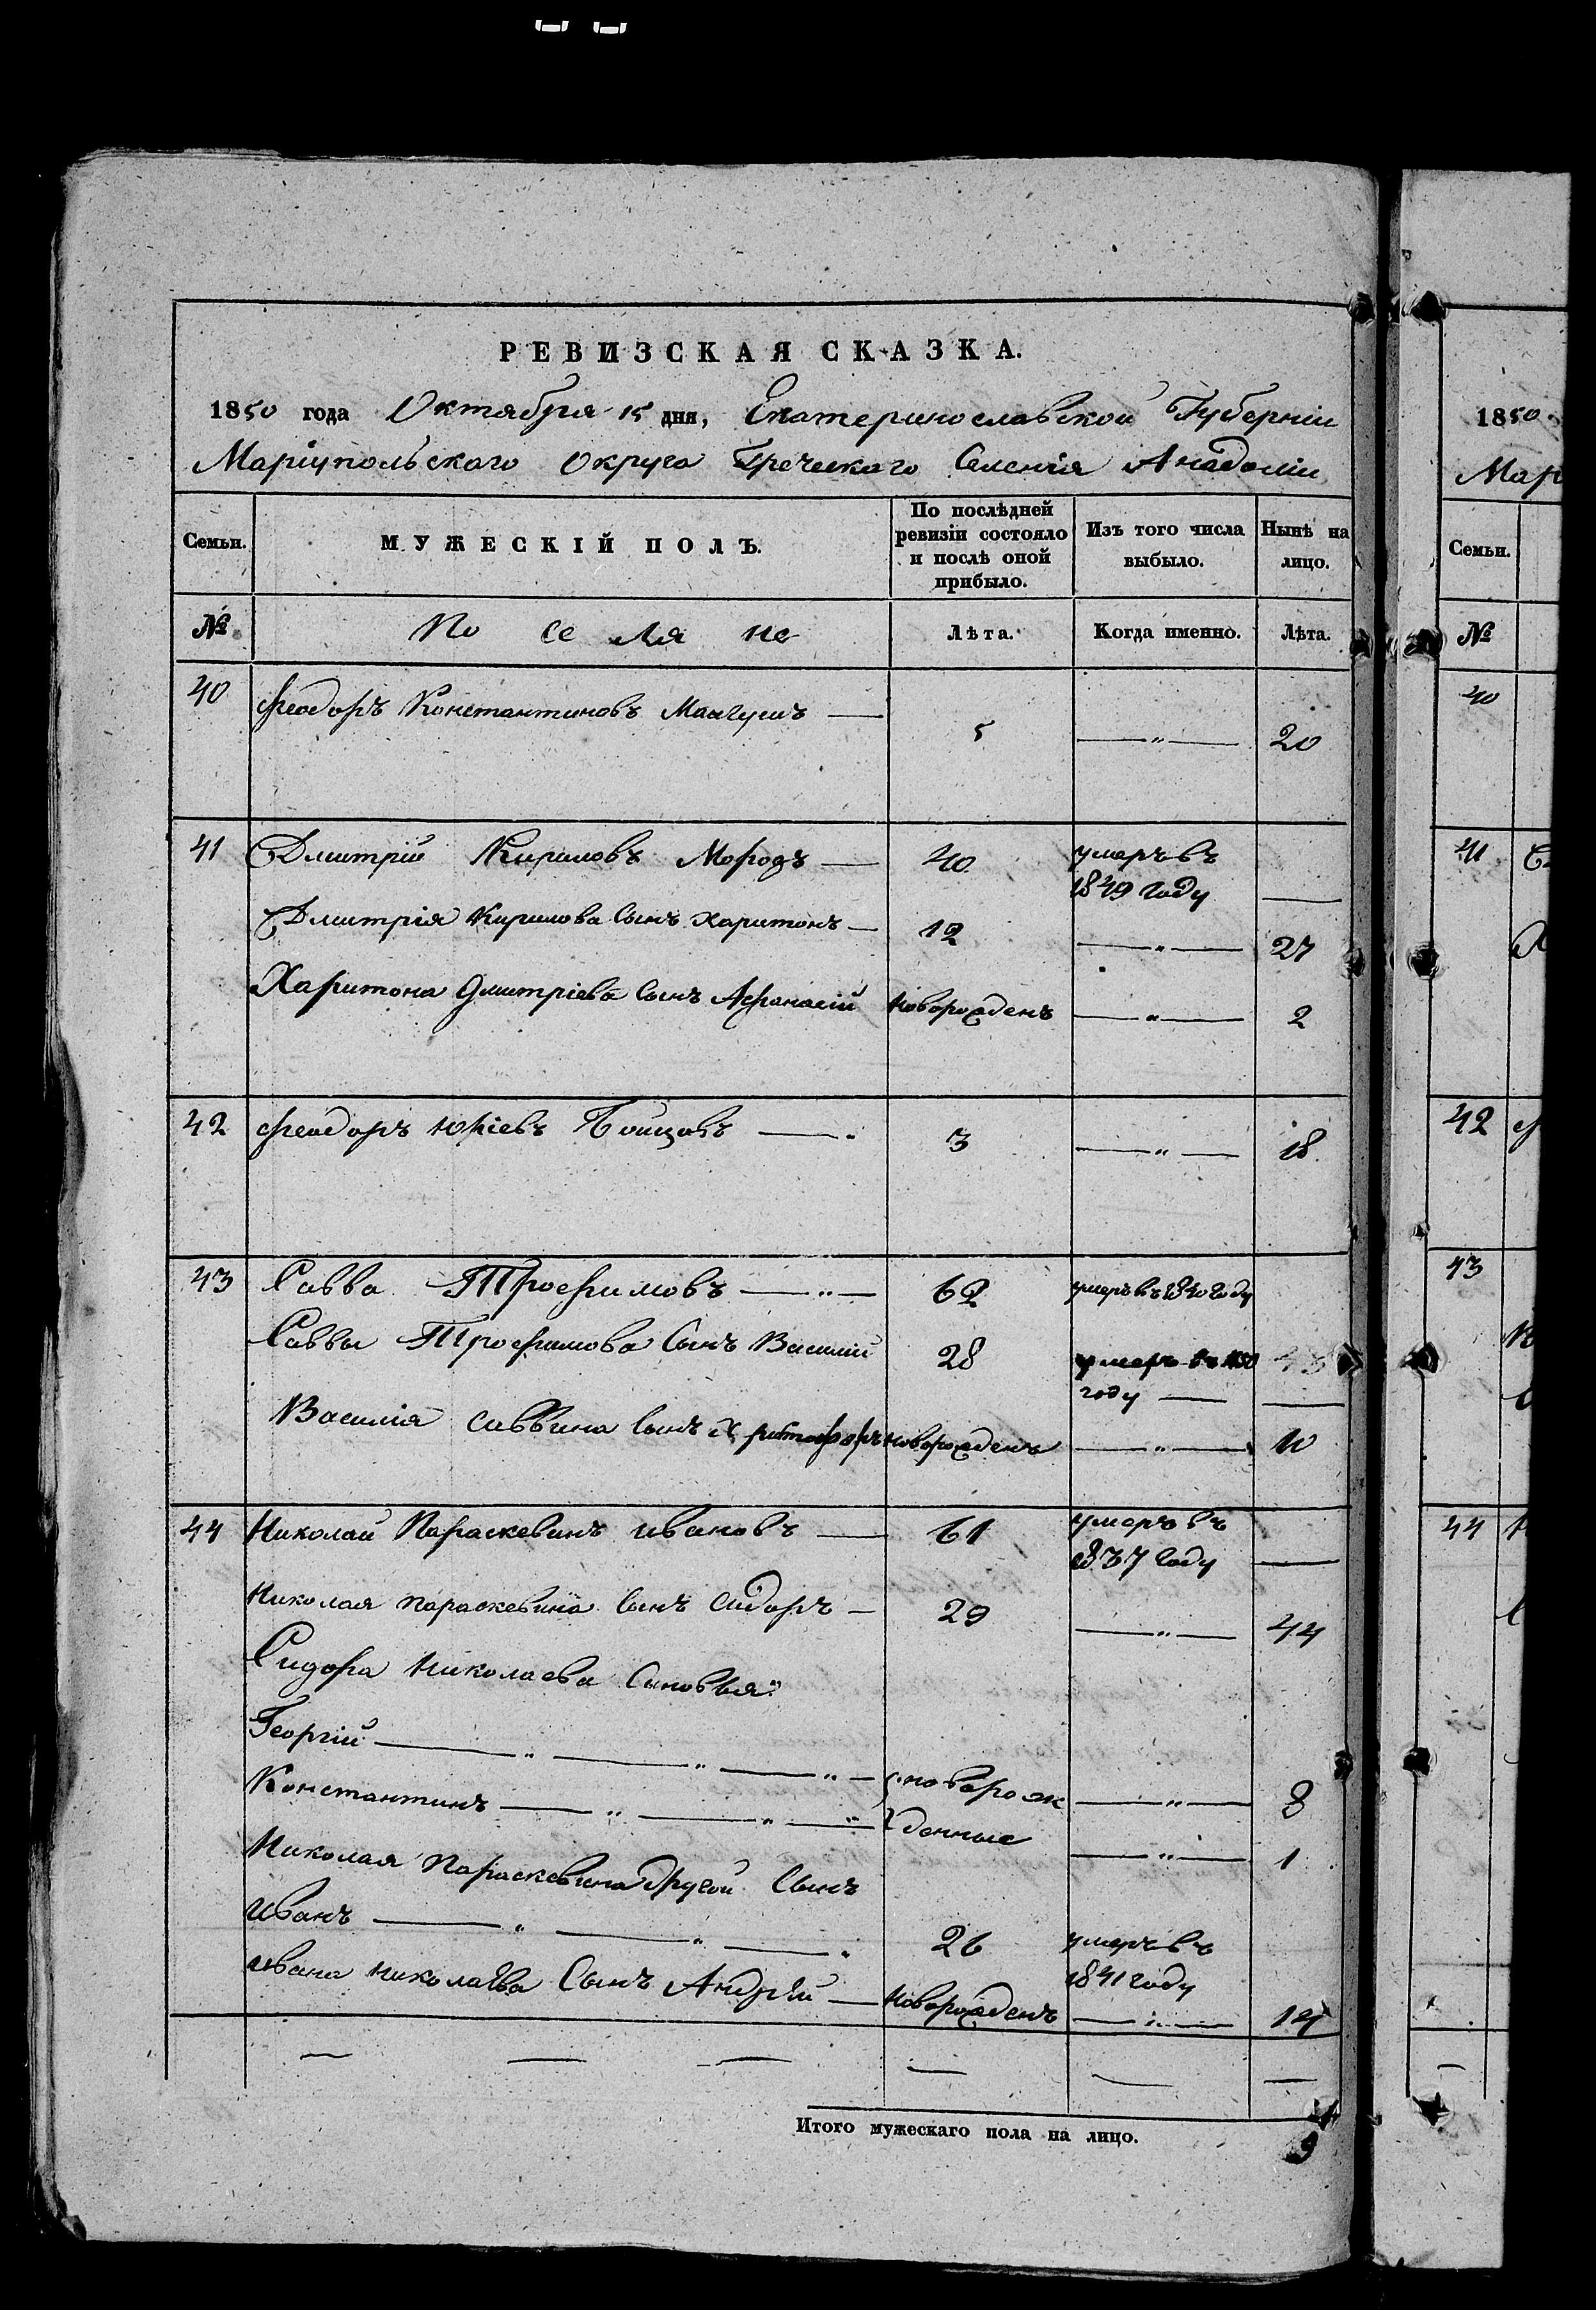 РЕВИЗСКАЯ СКАЗКА.
1850 года Октября 15 дня, Екатеринославской Губерніи
Маріупольскаго Округа Греческаго Селенія Анадоліи
Семьи.
МУЖЕСКІЙ ПОЛЪ.
По послѣдней
ревизіи состояло
и послѣ оной
прибыло.
Изъ того числа
выбыло.
Нынѣ на
лицо.
№
По се ля не
Лѣта.
Когда именно.
Лѣта.
40 Феодоръ Константиновъ Мангушъ — 5 —„— 20
41 Дмитрій Кириловъ Мородъ — 40 умеръ въ
1849 году —
Дмитрія Кирилова Сынъ Харитонъ — 12 —„— 27
Харитона Дмитріева Сынъ Афанасій Новорожденъ —„— 2
42 Феодоръ Юріевъ —„ 3 —„— 18
43 Савва Трофимовъ —„— 62 умеръ въ 1840 году
Саввы Трофимова Сынъ Василій 28 умеръ въ 1850
году — —
Василія Саввина Сынъ Христофоръ новорожденъ —„— 10
44 Николай Параскевинъ Ивановъ — 61 умеръ въ
1837 году —
Николая Параскевина Сынъ Сидоръ — 29 —„— 44
Сидора Николаева Сыновья:
Георгій —„—„—„— новорож —„— 8
Константинъ —„—„—„ денные —„— 1
Николая Параскевина другой Сынъ
Иванъ —„—„—„ 26 умеръ въ
1841 году
Ивана Николаева Сынъ Андрѣй — Новорожденъ —„— 14
— — — — — —
Итого мужескаго пола на лицо.
9
1850
Мар
Семьи.
№
40
41
42
43
44